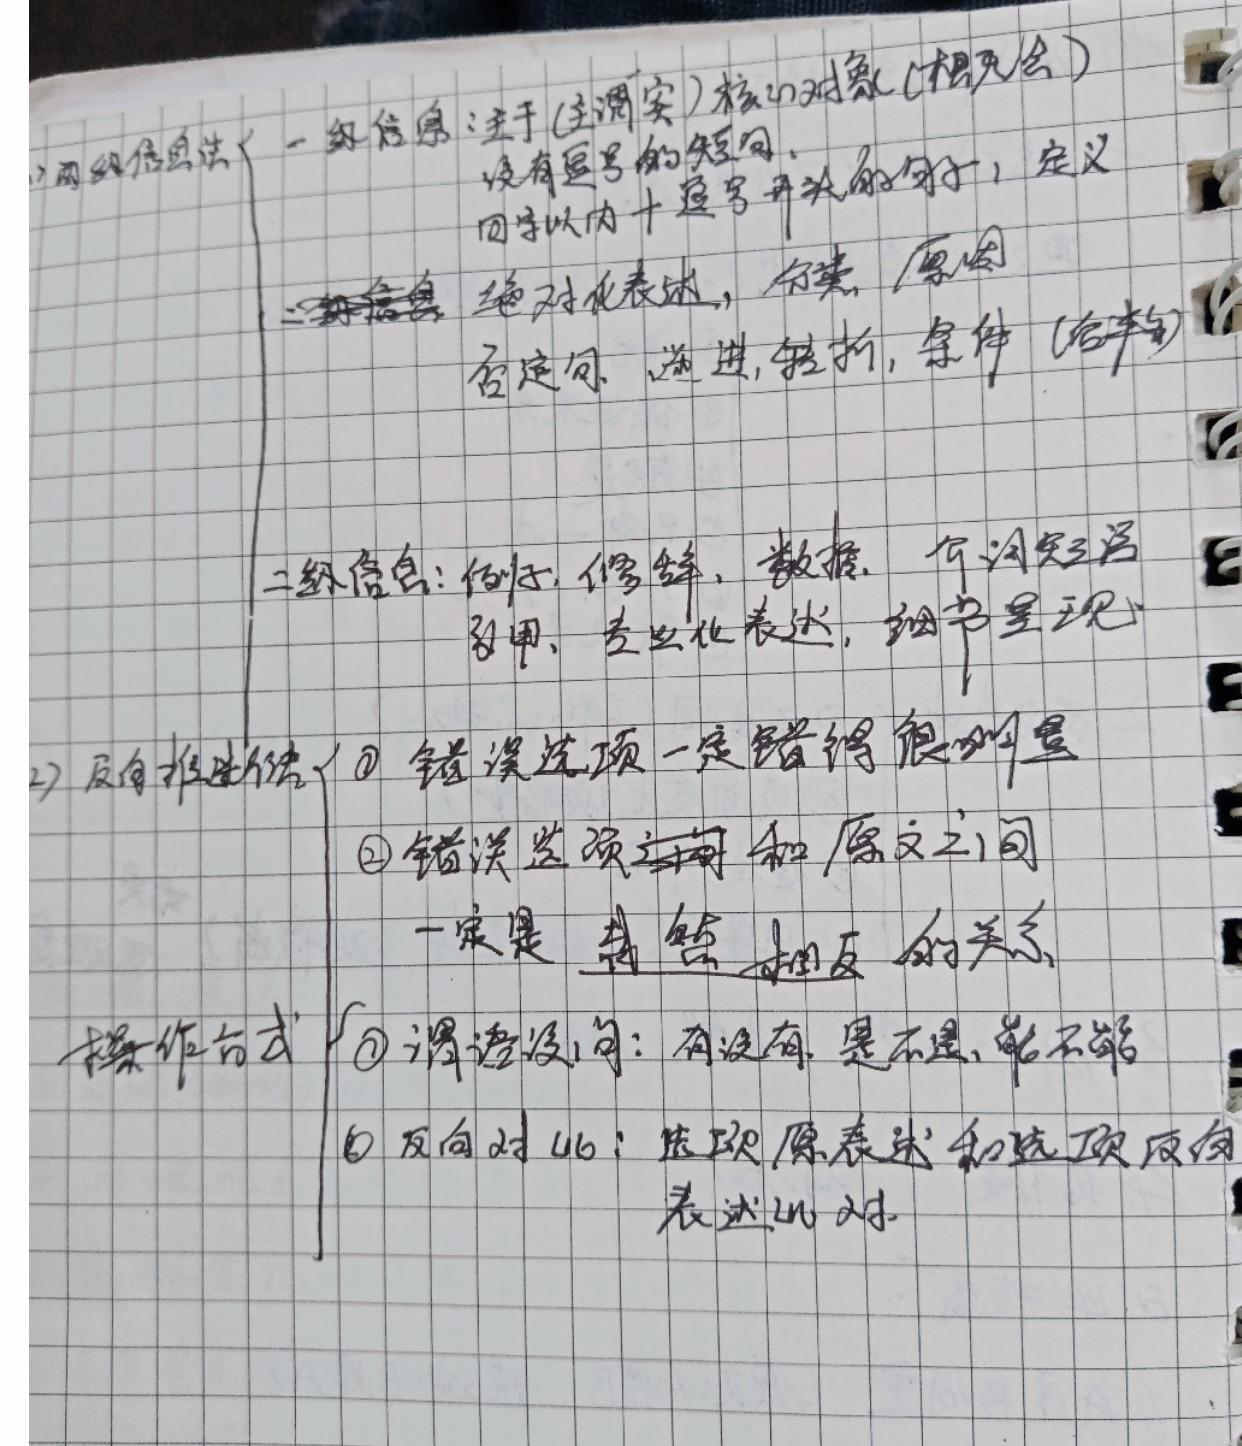 1) 两级信息法 一级信息：主干（主谓宾）核心对象（概念）
没有逗号的短句、
四字以内十逗号开头的句子，定义
绝对化表述，分类、原因
否定句、递进，转折，条件（后半句）
二级信息：例子、修辞、数据、介词短语
引用、专业化表述，细节呈现
2) 反向推进法 ① 错误选项一定错得很明显
② 错误选项和原文之间
一定是 截然相反 的关系
操作方式 ① 谓语设问：有没有、是不是、能不能
② 反向对比：选项原表述和选项反向
表述比对.